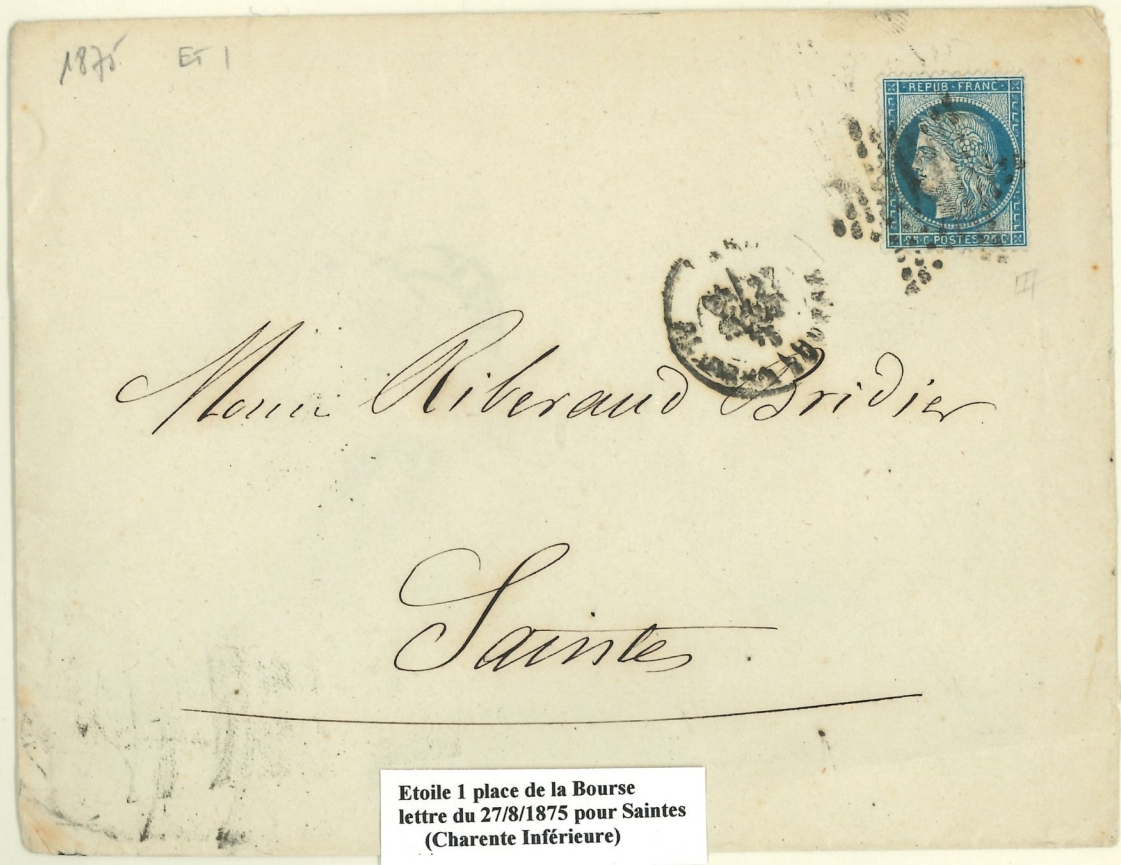 1875 ET 1
REPUB · FRANC ·
25 C POSTES 25 C
Riberaud Bridier
Saintes
Etoile 1 place de la Bourse
lettre du 27/8/1875 pour Saintes
(Charente Inférieure)